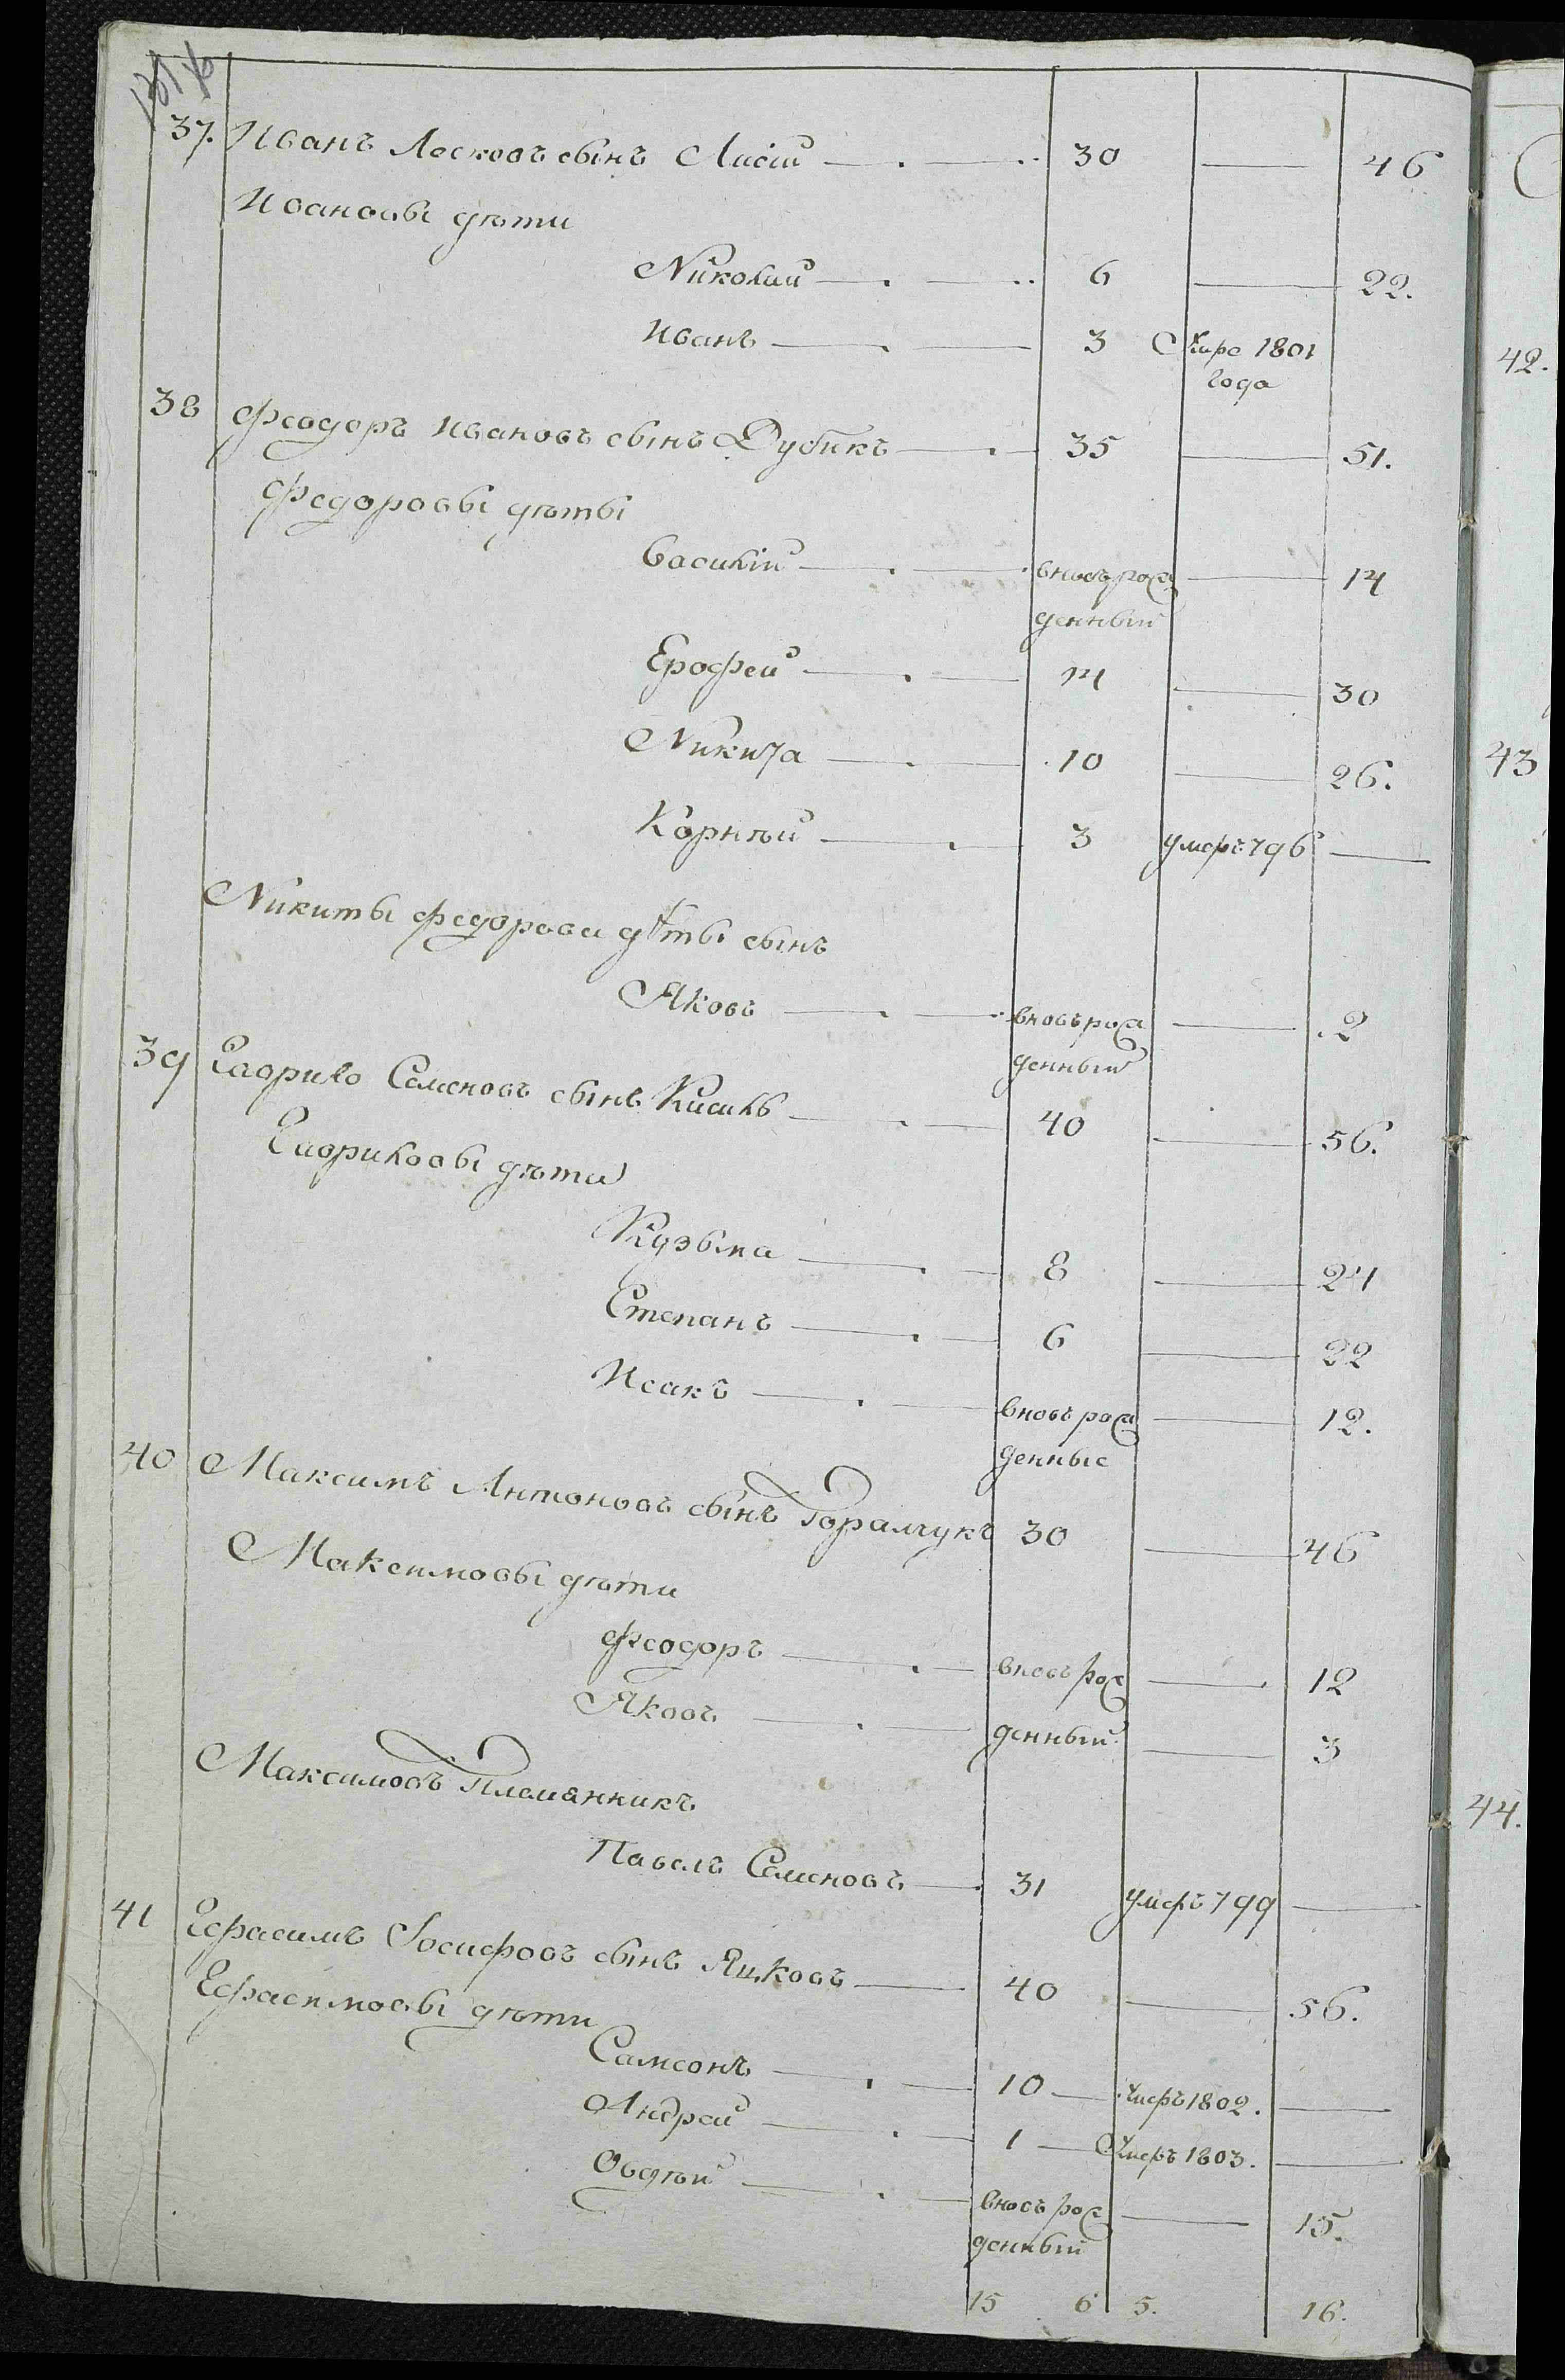 37. Иванъ Лесковъ сынъ Лисій 30 46
Ивановы дѣти
Николай 6 22.
Иванъ 3 Умре 1801
года
38 Феодоръ Ивановъ сынъ Дубикъ 35 51.
Федоровы дѣты
Василій вновь рож 14
денный
Ерофей 14 30
Никита 10 26.
Корнѣй 3 умеръ 796
Никиты Федорова дѣты сынъ
Яковъ вновь рож 2
денный
39 Гаврило Семеновъ сынъ Кисиль 40 56.
Гавриловы дѣти
Кузьма 8 24
Степанъ 6 22
Исакъ вновь рож 12.
денные
40 Максимъ Антоновъ сынъ Горалчукъ 30 46
Максимовы дѣти
Феодоръ вновь рож 12
Яковъ денный 3
Максимовъ Племянникъ
Павелъ Семеновъ 31 умеръ 799
41 Герасимъ Іосифовъ сынъ Яцковъ 40 56.
Герасимовы дѣти
Самсонъ 10 Умеръ 1802.
Андрей 1 Умеръ 1803.
Овдѣй вновь рож 15.
денный
15 6 5. 16.
42.
43
44.